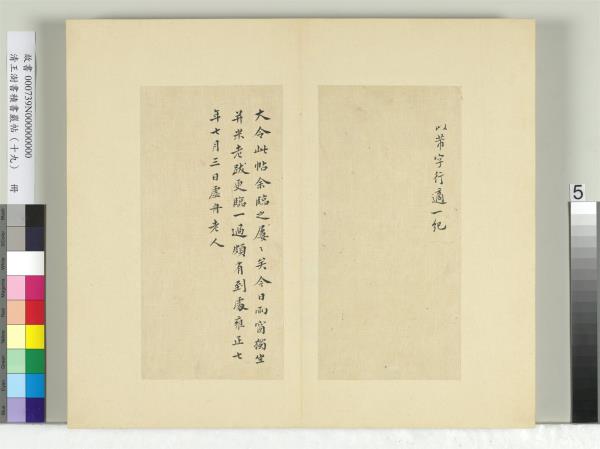 以芾字行適一紀
大令此帖余臨之屢〻矣今日雨窗獨坐
并米老跋更臨一過頗有到處雍正七
年七月三日虛舟老人
故書 000739N000000000
清王澍書積書巖帖(十九) 冊
5